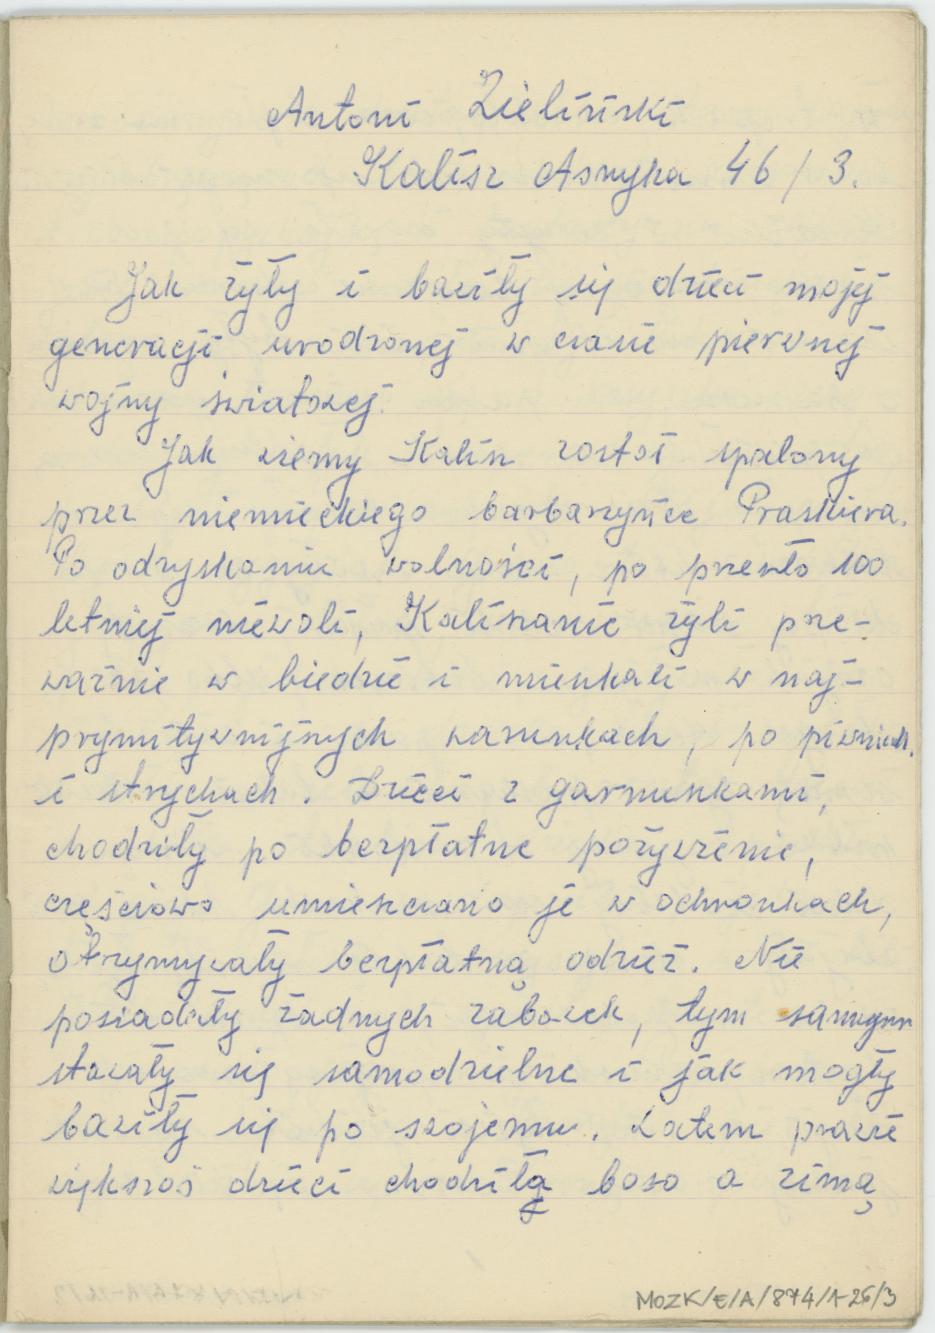 Antoni Zieliński
Kalisz Asnyka 46/3.
Jak żyły i bawiły się dzieci mojej
generacji urodzonej w czasie pierwszej
wojny światowej.
Jak wiemy Kalisz został spalony
przez niemieckiego barbarzyńce Praskiera.
Po odzyskaniu wolności, po przeszło 100
letniej niewoli, Kaliszanie żyli prze-
ważnie w biedzie i mieszkali w naj-
prymitywniejszych warunkach, po piwnicach.
i strychach. Dzieci z garnuszkami,
chodziły po bezpłatne pożywienie,
częściowo umieszczano je w ochronkach,
otrzymywały bezpłatną odzież. Nie
posiadały żadnych zabawek, tym samym
stawały się samodzielne i jak mogły
bawiły się po swojemu. Latem prawie
większoś dzieci chodziła boso a zimą
MOZK/E/A/874/1-26/3